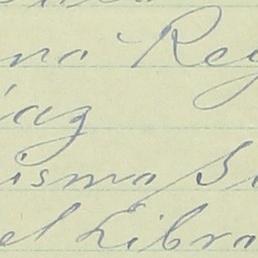 na Rey
iaz
isma Si
el Libra